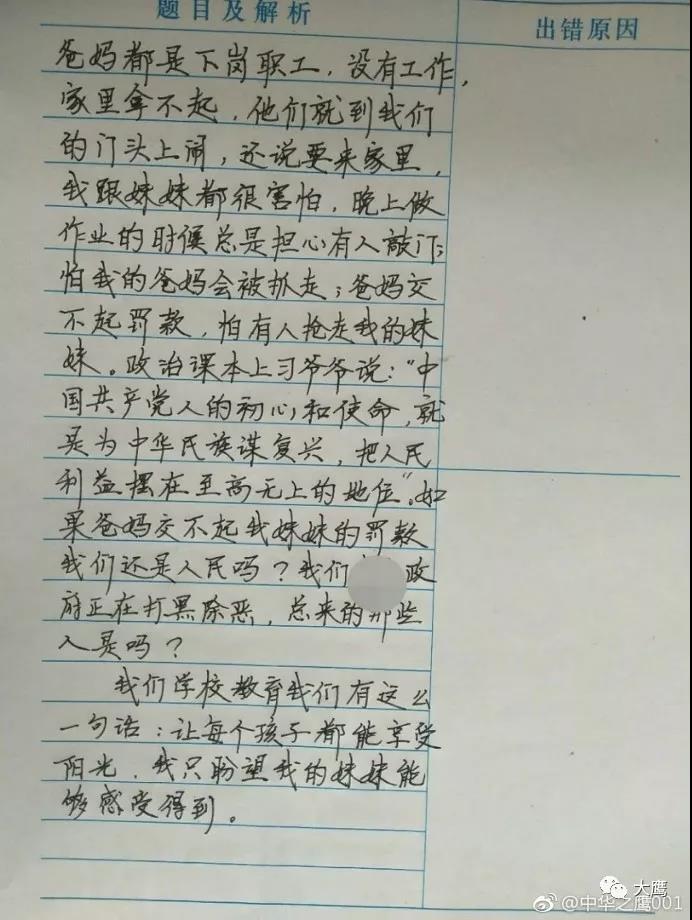 题目及解析
出错原因
爸妈都是下岗职工，没有工作，
家里拿不起，他们就到我们
的门头上闹，还说要来家里，
我跟妹妹都很害怕，晚上做
作业的时候总是担心有人敲门；
怕我的爸妈会被抓走；爸妈交
不起罚款，怕有人抢走我的妹
妹。政治课本上习爷爷说：“中
国共产党人的初心和使命，就
是为中华民族谋复兴，把人民
利益摆在至高无上的地位”。如
果爸妈交不起我妹妹的罚款
我们还是人民吗？我们 政
府正在打黑除恶，总来的那些
人是吗？
我们学校教育我们有这么
一句话：让每个孩子都能享受
阳光，我只盼望我的妹妹能
够感受得到。
大鹰
@中华之鹰001